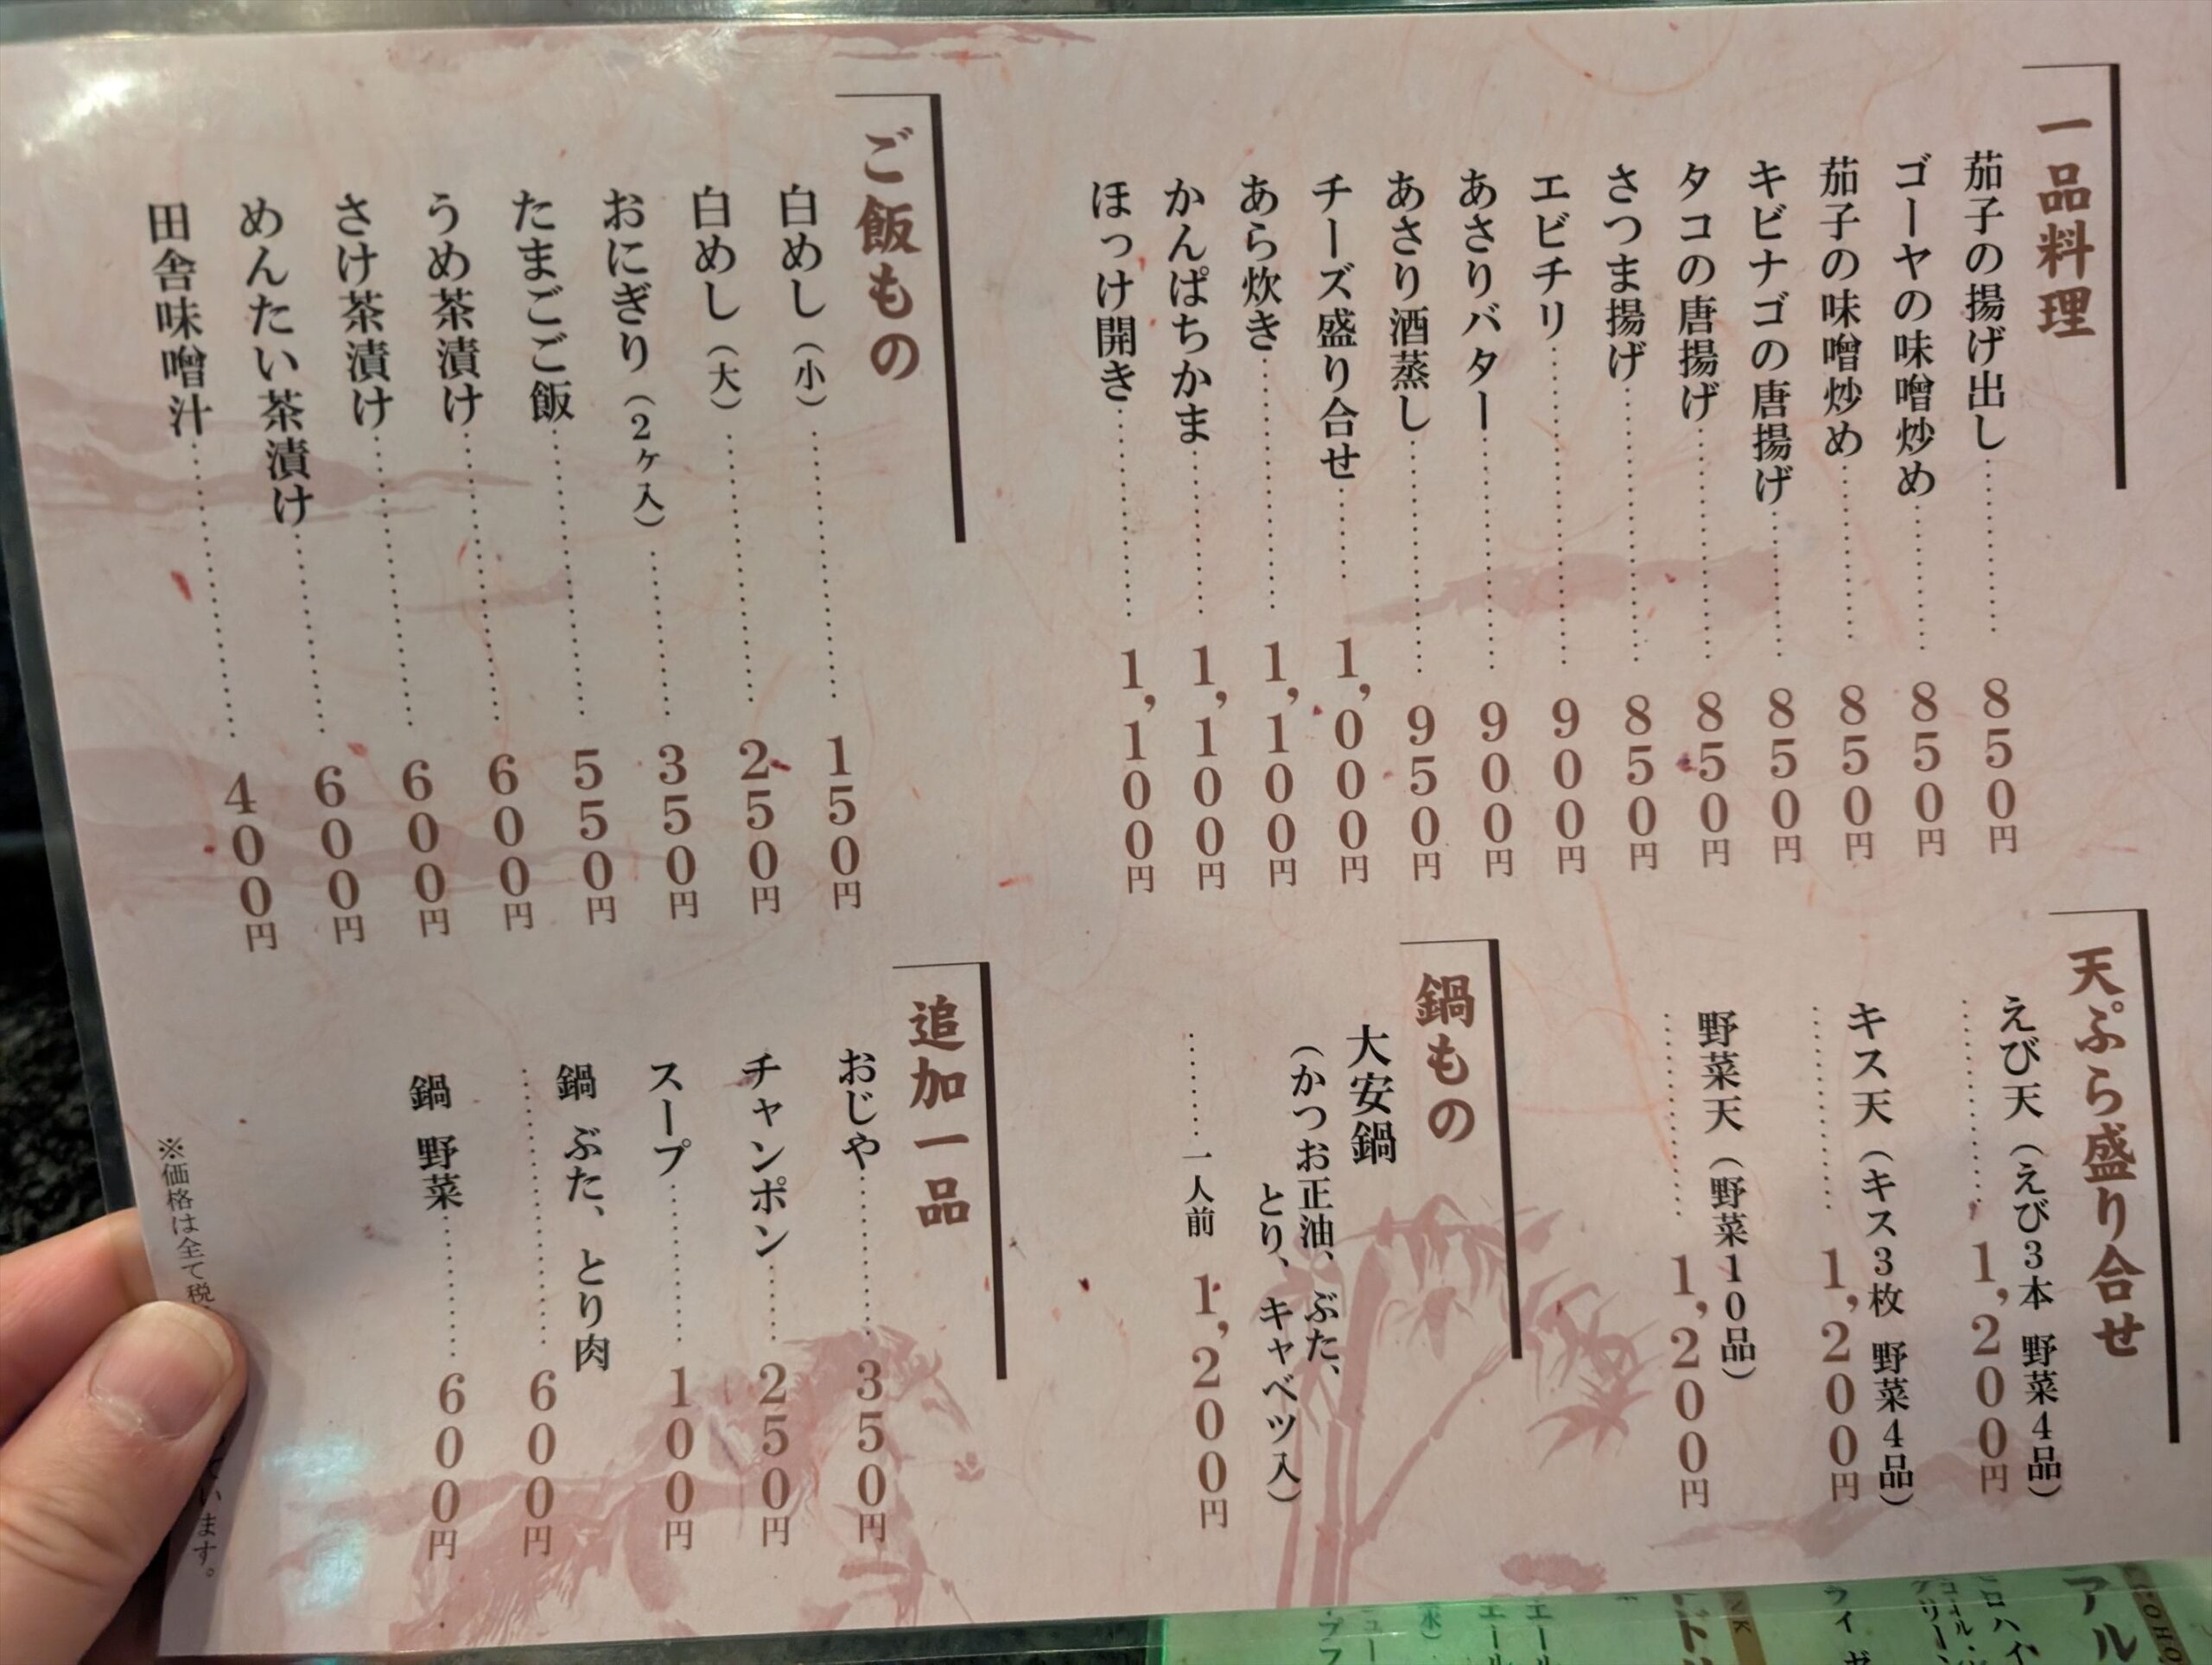 一品料理
茄子の揚げ出し………850円
ゴーヤの味噌炒め………850円
茄子の味噌炒め………850円
キビナゴの唐揚げ………850円
タコの唐揚げ………850円
さつま揚げ………850円
エビチリ………900円
あさりバター………900円
あさり酒蒸し………950円
チーズ盛り合せ………1,000円
あら炊き………1,100円
かんぱちかま………1,100円
ほっけ開き………1,100円
ご飯もの
白めし（小）………150円
白めし（大）………250円
おにぎり（2ヶ入）………350円
たまごご飯………550円
うめ茶漬け………600円
さけ茶漬け………600円
めんたい茶漬け………600円
田舎味噌汁………400円
天ぷら盛り合せ
えび天（えび3本 野菜4品）
………1,200円
キス天（キス3枚 野菜4品）
………1,200円
野菜天（野菜10品）
………1,200円
鍋もの
大安鍋
（かつお正油、ぶた、
とり、キャベツ入）
………一人前 1,200円
追加一品
おじや………350円
チャンポン………250円
スープ………100円
鍋 ぶた、とり肉
………600円
鍋 野菜………600円
※価格は全て税
ています。
アル